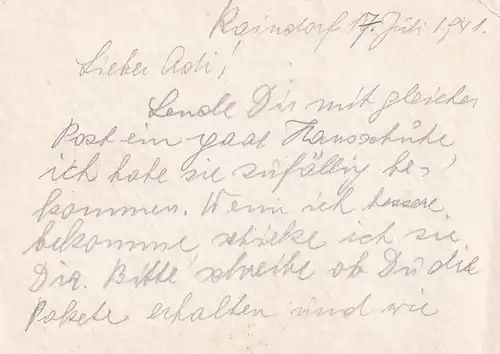 Raindorf 17. Juli 1941.
Lieber Adi!
Sende Dir mit gleicher
Post ein paar Hansschuhe
ich habe sie zufällig be-
kommen. Wenn ich bessere
bekomme schicke ich sie
Dir. Bitte schreibe ob Du die
Pakete erhalten und wie